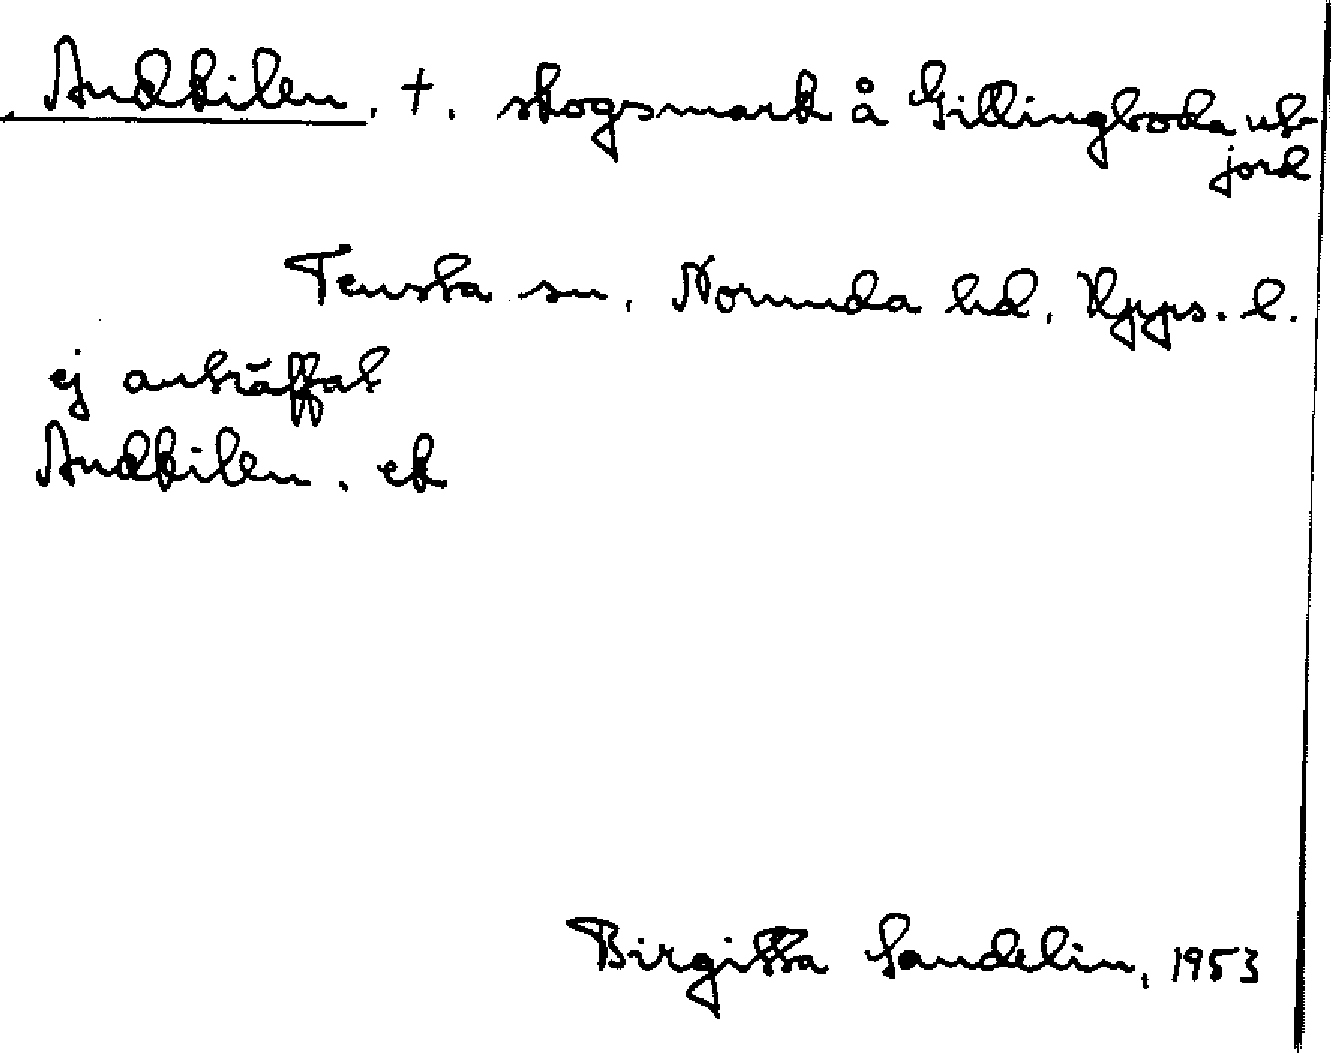 Andkilen. †. skogsmark å Gillingboda ut-
jord
Tensta sn, Norunda hd, Upps. l.
ej anträffat
Andkilen. ek
Birgitta Sandelin, 1953